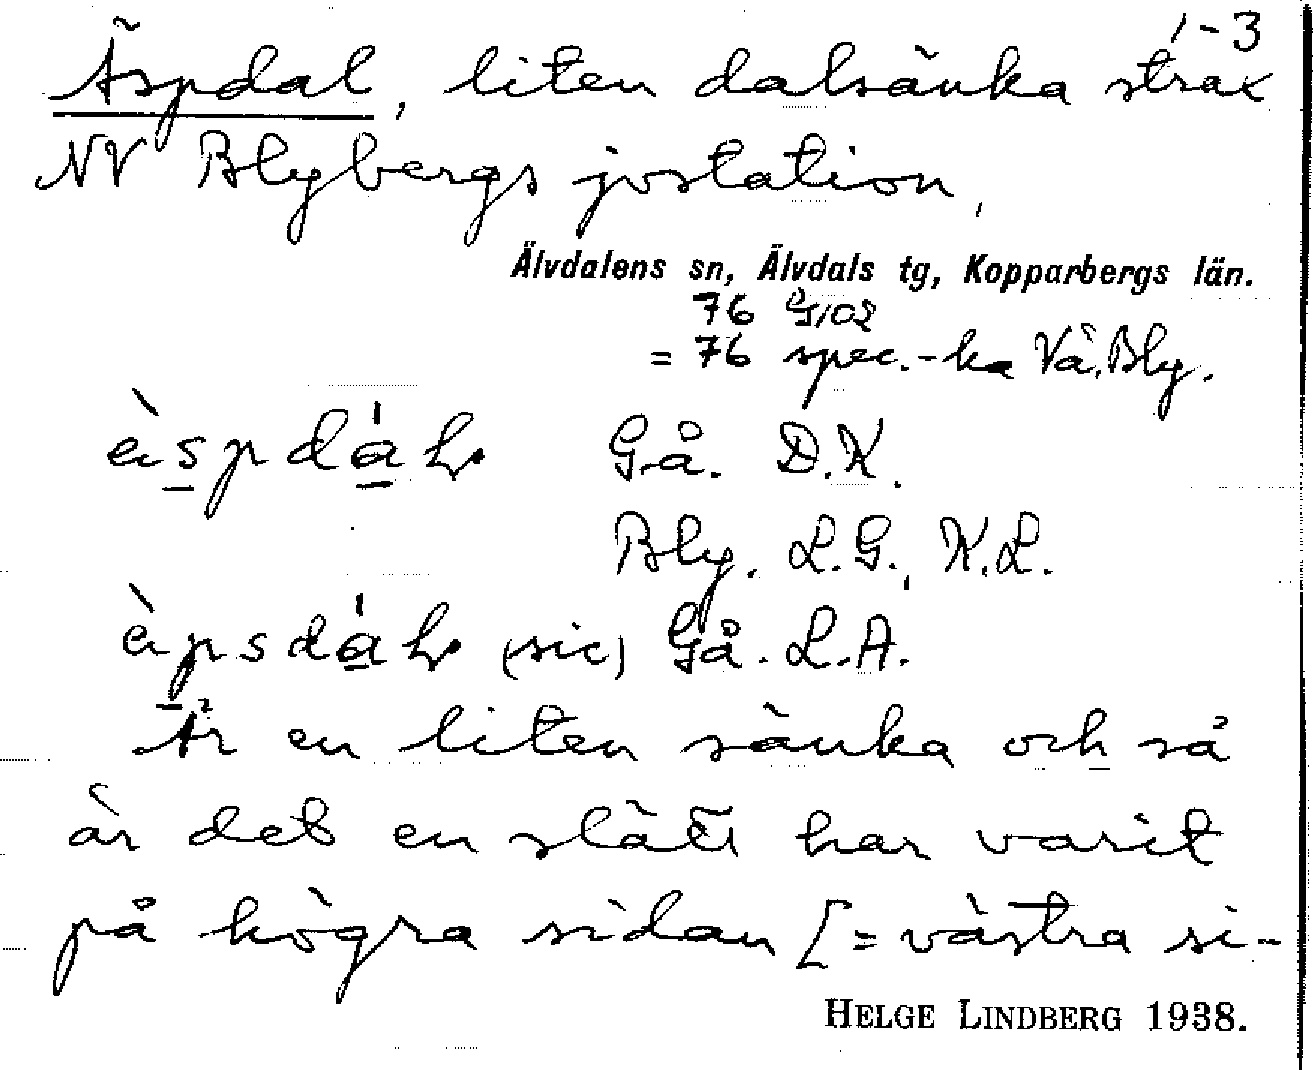 1-3
Äspdal, liten dalsänka strax
NV Blybergs jvstation,
Älvdalens sn, Älvdals tg, Kopparbergs län.
76 G102
= 76 spec.-ka Vä. Bly.
Gå. D.K.
Bly. L.G., K.L.
(sic) Gå. L.A.
Är en liten sänka och så
är det en slätt har varit
på högra sidan [= västra si-
HELGE LINDBERG 1938.